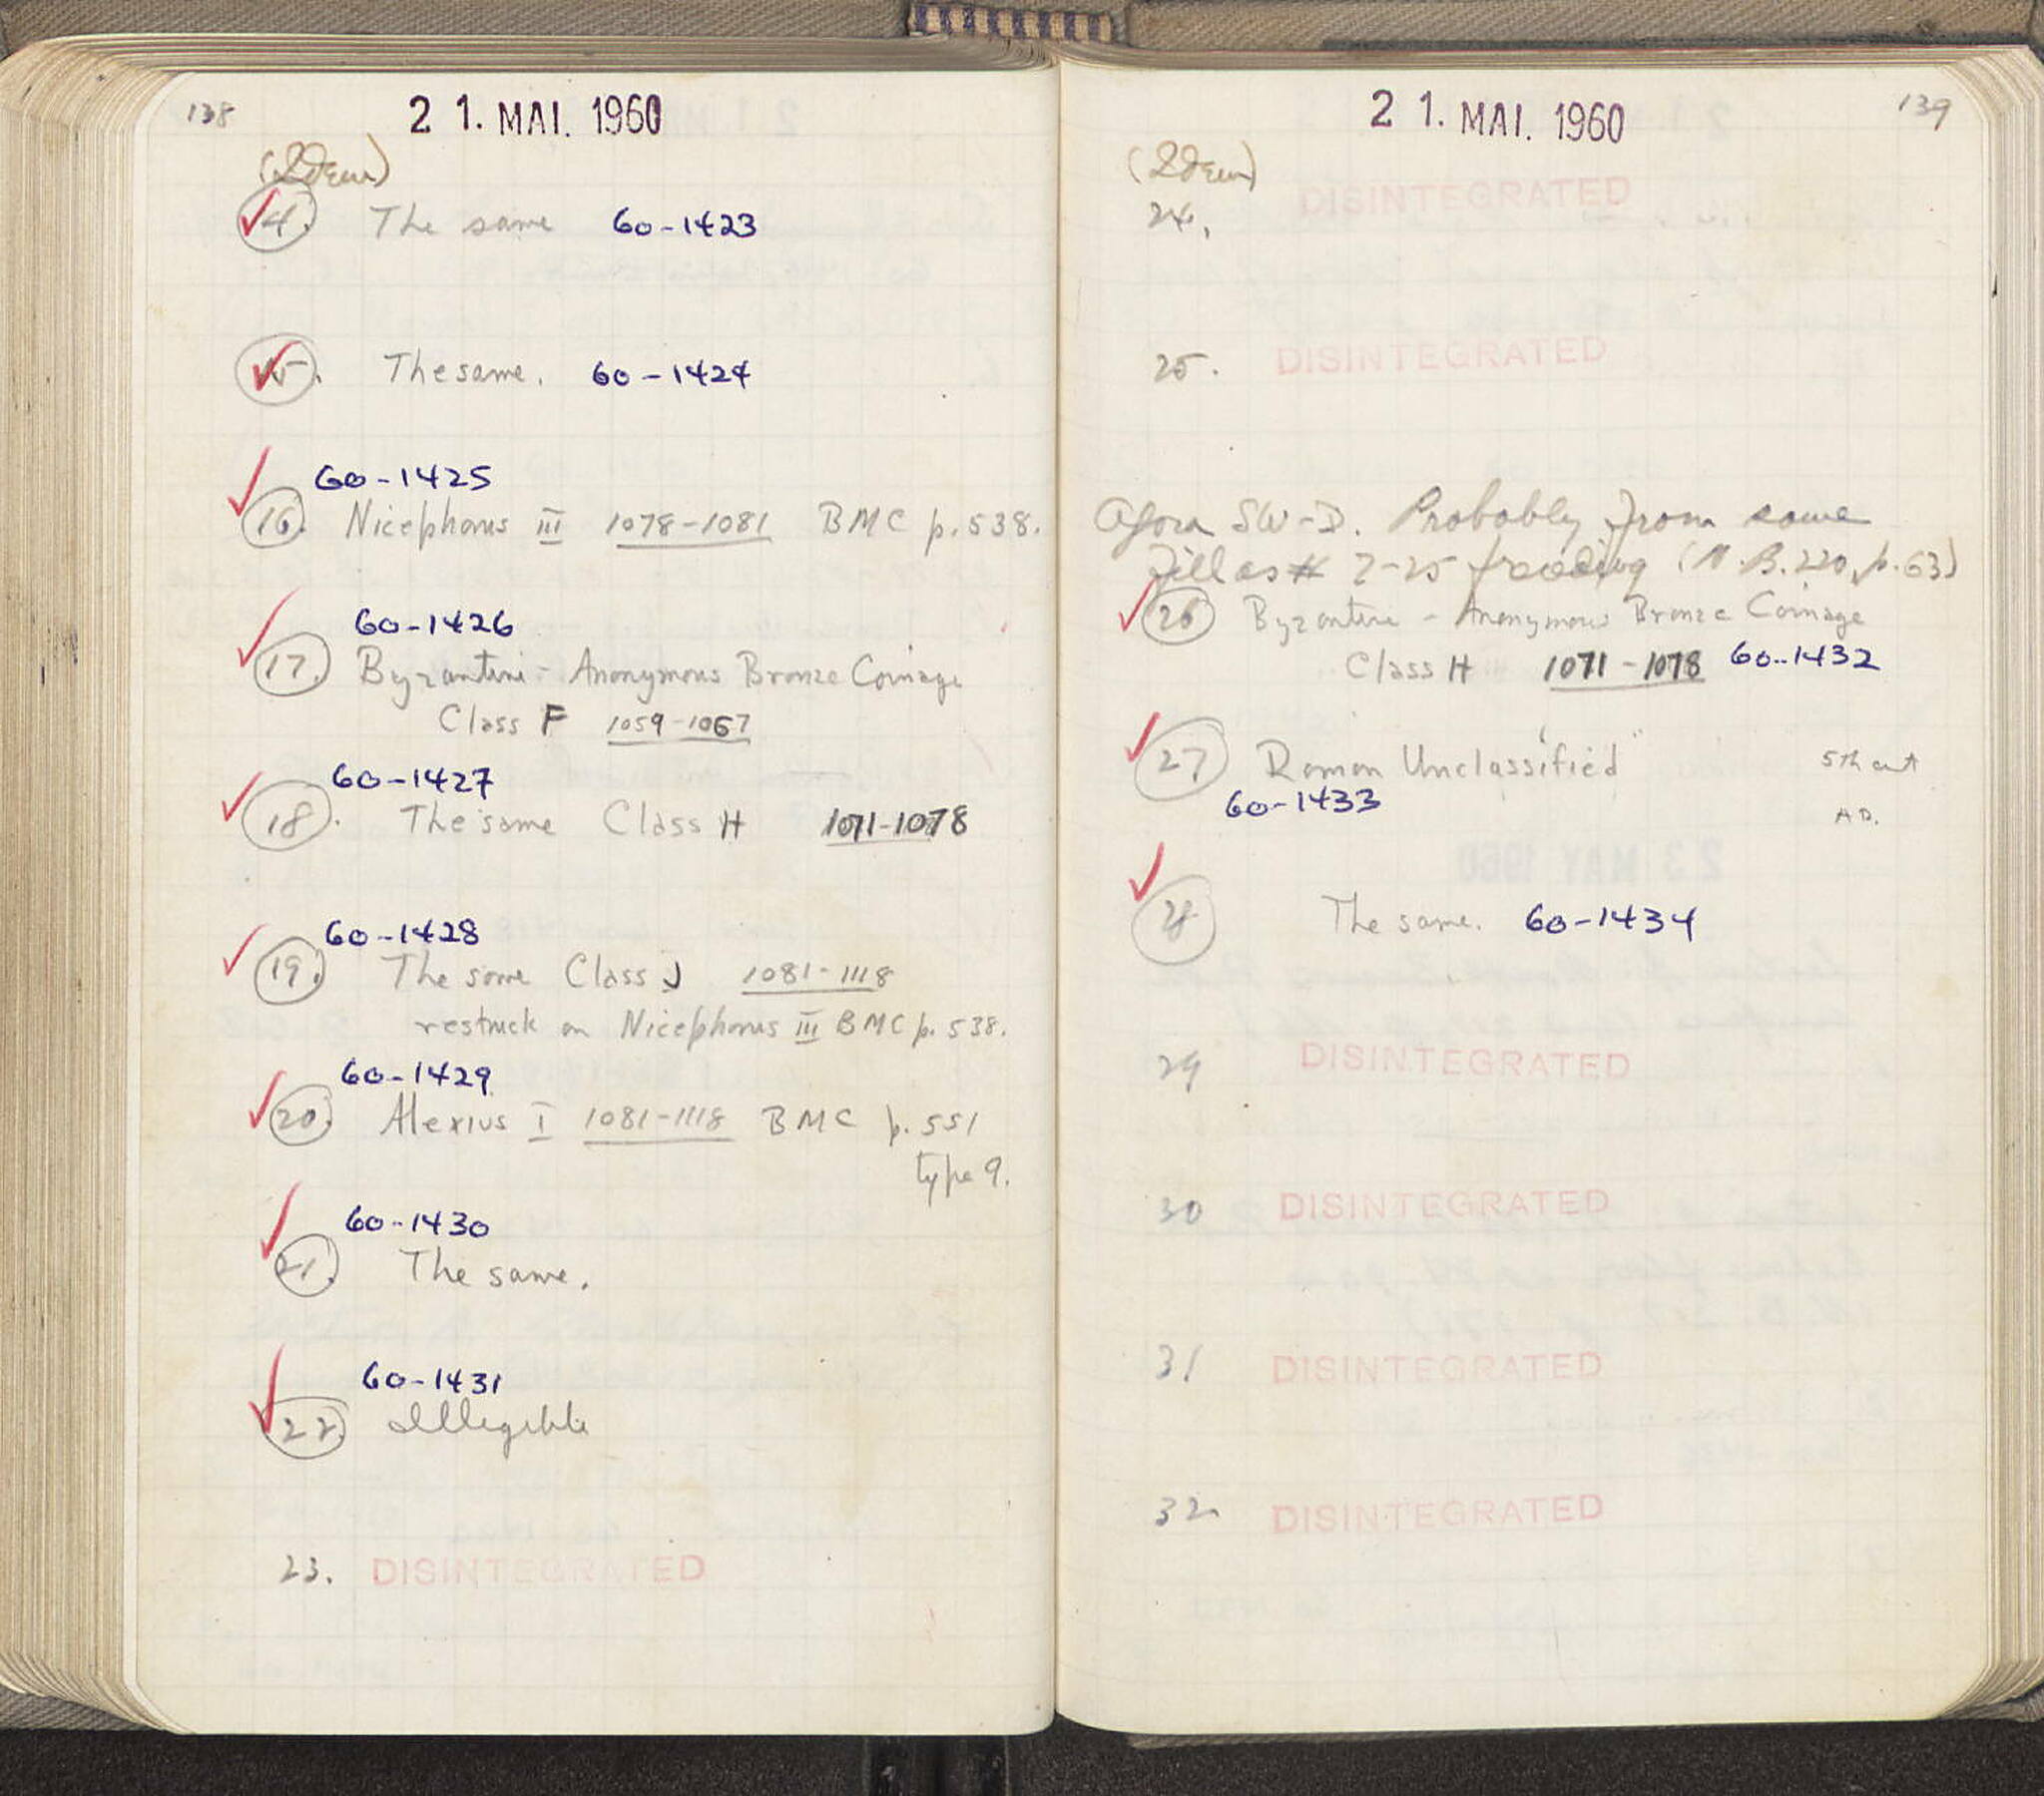 138
21. MAI. 1960
14. The same 60-1423
15. The same. 60-1424
60-1425
16. Nicephorus III 1078-1081 BMC p. 538.
60-1426
17. Byzantine - Anonymous Bronze Coinage
Class F 1059-1067
60-1427
18. The same Class H 1071-1078
60-1428
19. The same Class J 1081-1118
restruck on Nicephorus III BMC p. 538.
60-1429
20. Alexius I 1081-1118 BMC p. 551
type 9.
60-1430
21. The same.
60-1431
22. Illegible
23. DISINTEGRATED
139
21. MAI. 1960
24. DISINTEGRATED
25. DISINTEGRATED
Agora SW-D. Probably from same
fill as # 7-25 (N.B. 220, p. 63)
26 Byzantine - Anonymous Bronze Coinage
Class H 1071-1078 60-1432
27 Roman Unclassified" 5th cent
60-1433 A.D.
28 The same. 60-1434
29 DISINTEGRATED
30 DISINTEGRATED
31 DISINTEGRATED
32 DISINTEGRATED